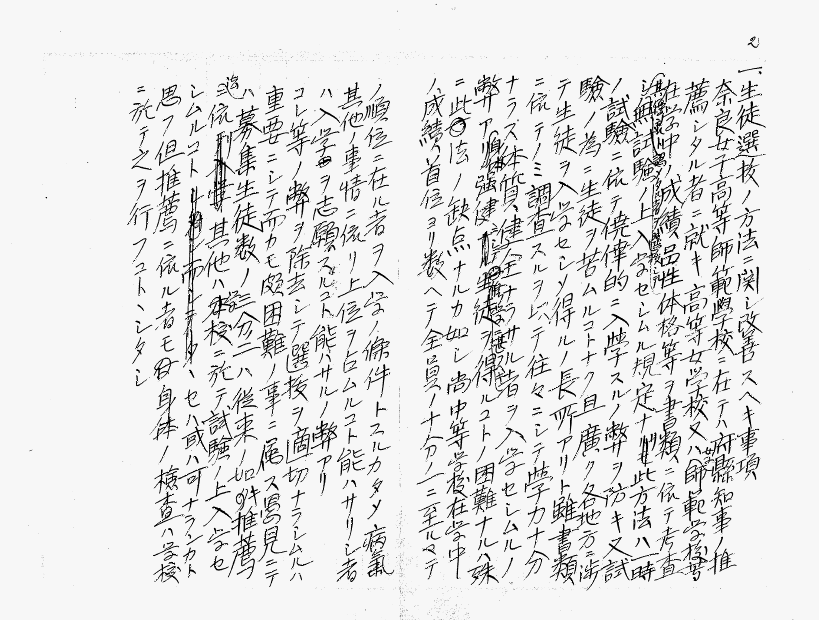 2
一、生徒選抜ノ方法ニ関シ改善スヘキ事項
奈良女子高等師範学校ニ在テハ府縣知事ノ推
薦シタル者ニ就キ高等女学校又ハ師範学校等
在学中ノ成績品性体格等ヲ書類ニ依テ考査
シ 試験ノ上入学セシムル規定ナリ此方法ハ一時
ノ試験ニ依テ僥倖的ニ入学スルノ弊ヲ防キ又試
験ノ為ニ生徒ヲ苦ムルコトナク且廣ク各地方ニ渉
テ生徒ヲ入学セシメ得ルノ長所アリト雖書類
ニ依テノミ調査スルヲ以テ往々ニシテ学力十分
ナラス体質健全ナラサル者ヲ入学セシムルノ
弊アリ 強健 生徒ヲ得ルコトノ困難ナルハ殊
ニ此方法ノ缺点ナルカ如シ尚中等学校在学中
ノ成績ハ首位ヨリ数ヘテ全員ノ十分ノ一ニ至ルマテ
ノ順位ニ在ル者ヲ入学ノ條件トスルカタメ病氣
其他ノ事情ニ依リ上位ヲ占ムルコト能ハサリシ者
ハ入学ヲ志願スルコト能ハサルノ弊アリ
コレ等ノ弊ヲ除去シテ選抜ヲ適切ナラシムルハ
重要ニシテ而カモ頗困難ノ事ニ属ス愚見ニテ
ハ募集生徒数ノ三分ノ二ハ従来ノ如キ推薦
ニ依リ 其他ハ 学校ニ於テ試験ノ上入学セ
シムルコトニ セハ或ハ可ナランカト
思フ但推薦ニ依ル者モ 身体ノ検査ハ学校
ニ於テ之ヲ行フコトヽシタシ